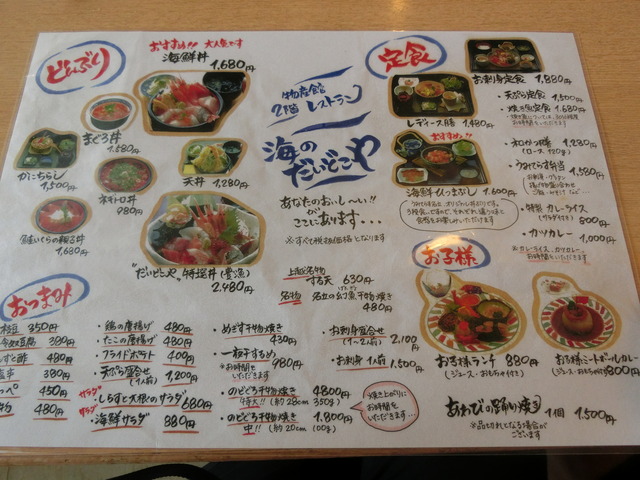 どんぶり
おすすめ!! 大人気です
海鮮丼
1,680円
まぐろ丼
1,580円
かにちらし
1,500円
天丼 1,280円
ネギトロ丼
980円
鮭いくらの親子丼
1,680円
"だいどこや"特選丼(豊漁)
2,480円
物産館
2階 レストラン
海の
だいどこや
あなたのおいし〜い!!
が
ここにあります・・・
※すべて税抜価格となります
定食
お刺身定食 1,880円
・天ぷら定食 1,500円
・焼き魚定食 1,680円
お時間をいただきます
レディース膳 1,480円
おすすめ!!
海鮮ひつまぶし 1,600円
ロースカツ膳 1,280円
(ロース120g)
うみてらす弁当
1,580円
・特製カレーライス
(サラダ付き)
800円
・カツカレー
1,000円
※カレーライス、カツカレー
お時間をいただきます
お子様
お子様ランチ 880円
(ジュース・おもちゃ付き)
お子様ミートボールカレー
(ジュース・おもちゃ付) 800円
あわびの踊り焼き 1個 1,500円
※品切れとなる場合が
ございます
おつまみ
枝豆 350円
冷奴豆腐 380円
480円
380円
450円
480円
・鶏の唐揚げ 480円
・たこの唐揚げ 480円
・フライドポテト 400円
・天ぷら盛合せ
(1人前) 1,200円
サラダ
・しらすと大根のサラダ
680円
サラダ
・海鮮サラダ 880円
・めぎす干物焼き
430円
・一夜干するめ
980円
※お時間を
いただきます
・のどぐろ干物焼き 4800円
特大!! (約28cm 350g)
・のどぐろ干物焼き 1,800円
中!! (約20cm 100g)
上越名物
する天 630円
名物 名立の幻魚干物焼き
480円
・お刺身盛合せ
(1〜2人前) 2,100円
・お刺身 1人前 1,500円
焼き上がりに
お時間を
いただきます…